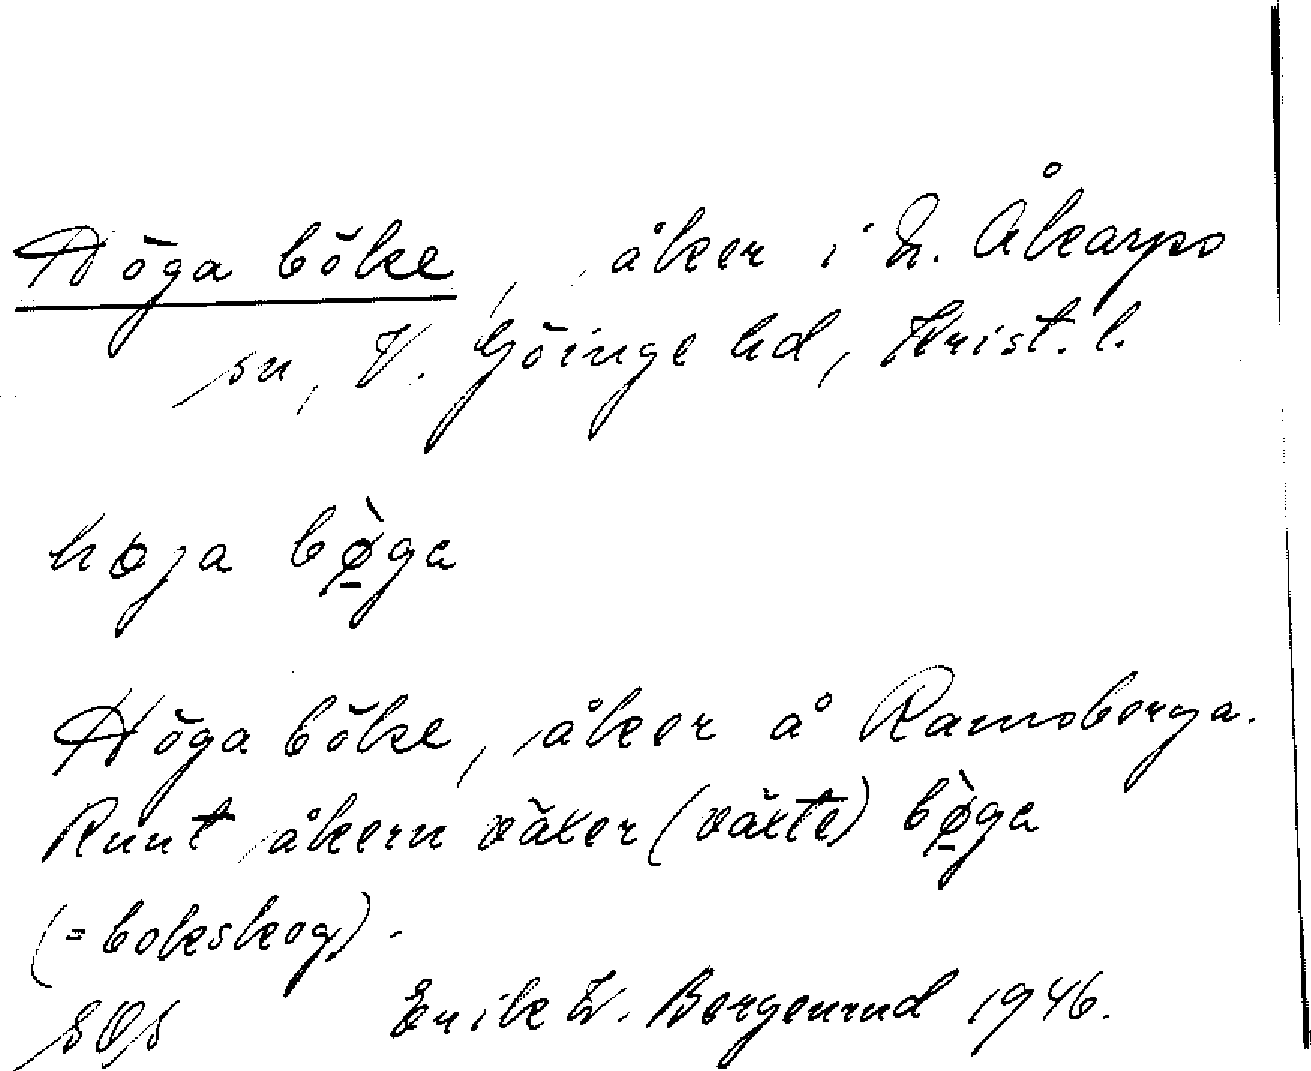 Höga böke, åker i N. Åkarps
sn, V. Göinge hd, Krist. l.
høja bø̠̀ga
Höga böke, åker å Ramsberga.
Runt åkern växer (växte) bø̠̀ga
(= bokskog).
Erik W. Bergenrud 1946.